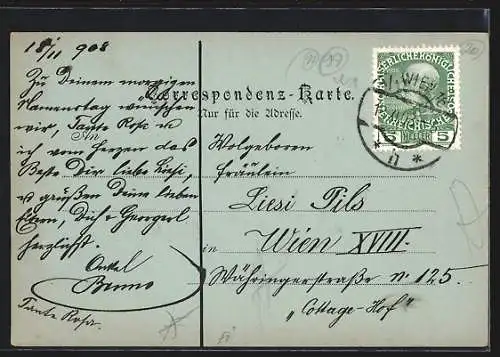 18/11 908
Zu Deinem morgigen
Namenstag wünschen
wir, Tante Rosa u
ich vom herzen das
Beste Dir liebe Liesi,
u grüßen Deine lieben
Eltern, Dich u Georgerl
herzlichst.
Onkel
Benno
Tante Rosa.
Correspondenz-Karte.
Nur für die Adresse.
An
Wolgeboren
Fräulein
Liesi Pils
in Wien XVIII.
Währingerstraße No 125.
„Cottage-Hof"
KAISERLICHEKÖNIGLICHE
ÖSTERREICHISCHE POST
5 HELLER 5
WIEN